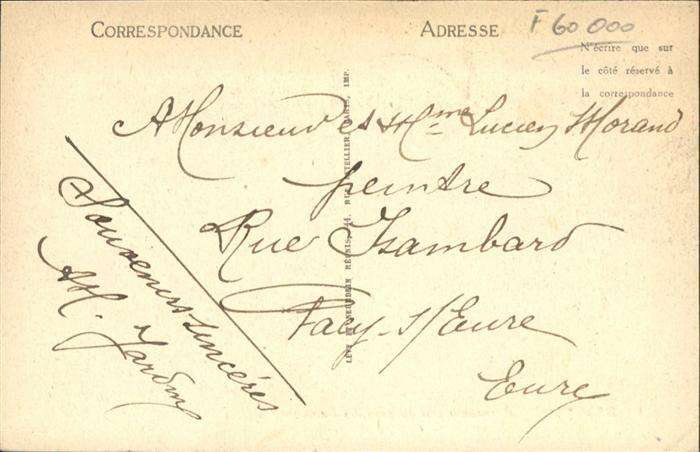 CORRESPONDANCE
ADRESSE
F 60 000
N'écrire que sur
le côté réservé à
la correspondance
A Monsieur et Mme Lucien Morand
peintre
Rue Isambard
Pacy-s/Eure
Eure
Souvenirs sincères
LÉVY ET NEURDEIN RÉUNIS, 44, RUE LETELLIER, PARIS, IMP.